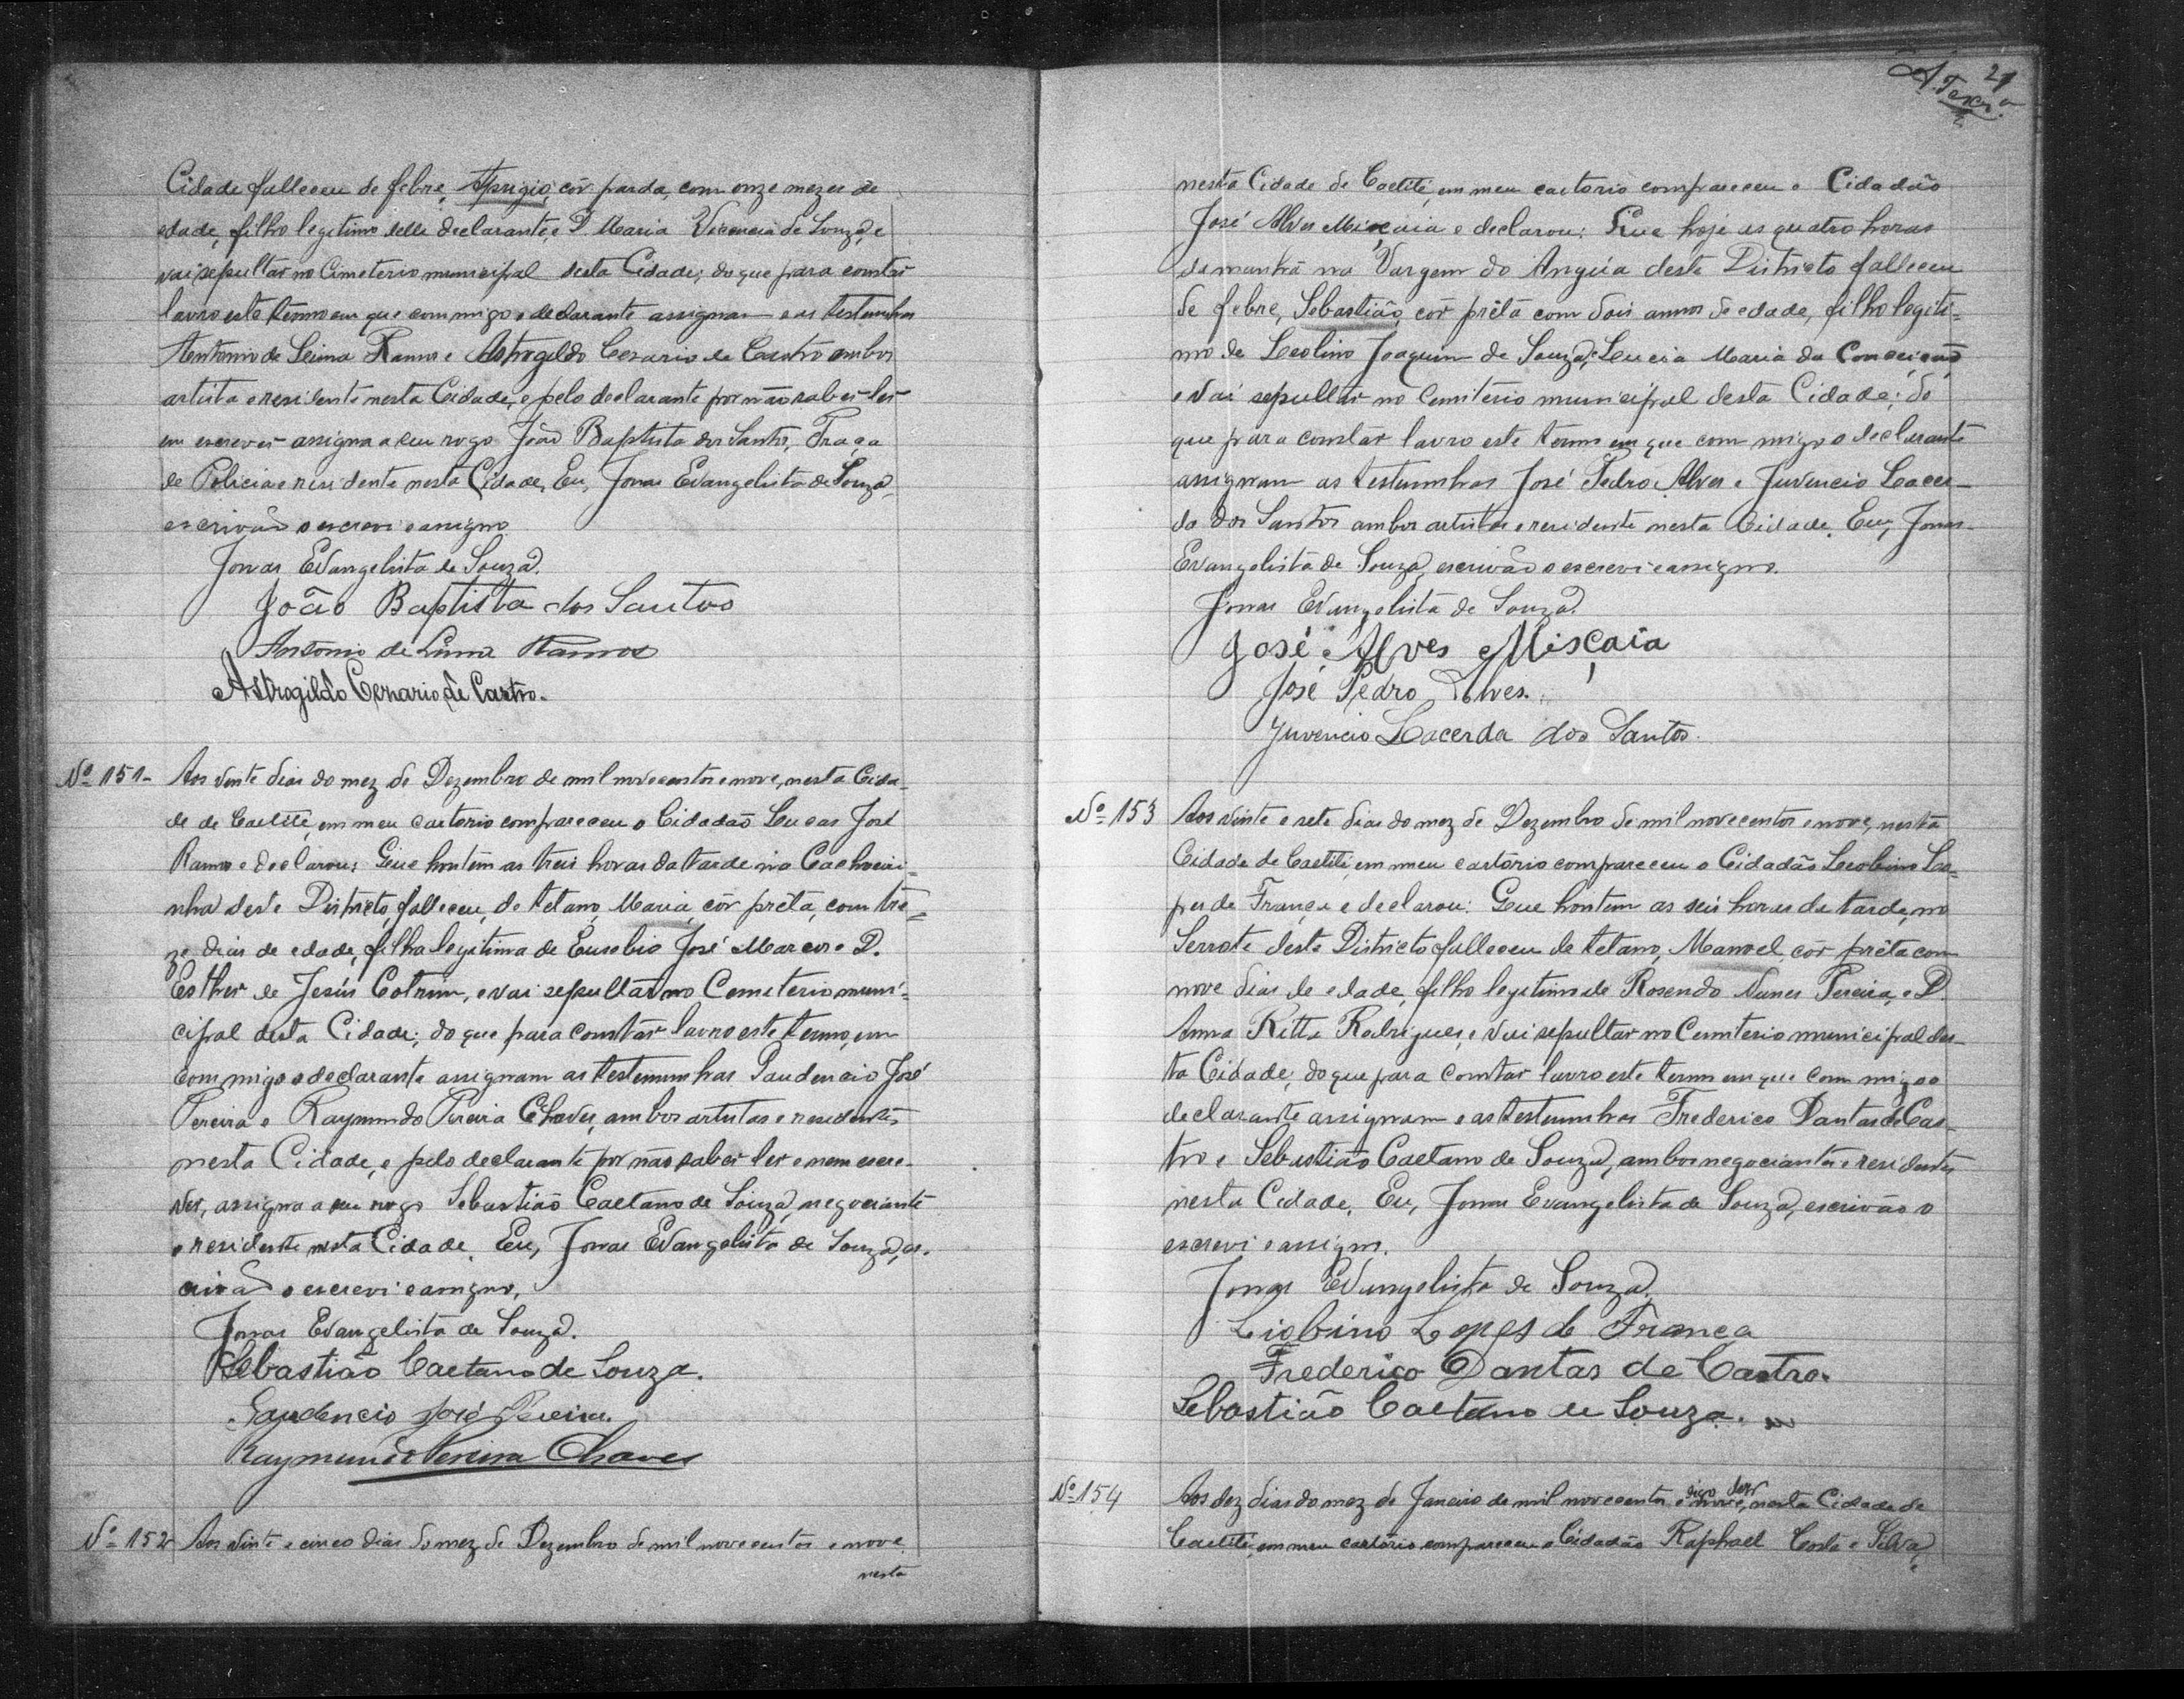 Cidade falleceu de febre, Aprigio, côr parda, com onze mezes de
edade, filho legitimo delle declarante, e D. Maria Vicencia de Souza, e
vai sepultar no Cimeterio municipal desta Cidade; do que para constar
lavro este termo em que commigo o declarante assignam e as testemunhas
Antonio de Leima Ramos e Astrogildo Cezario de Castro ambos
artista e residente nesta Cidade, e pelo declarante por não saber ler
em escrever assigna a seu rogo João Baptista dos Santos, Praça
de Policia e residente nesta Cidade, Eu, Jonas Evangelista de Souza,
escrivão o escrevi e assigno.
Jonas Evangelista de Souza.
João Baptista dos Santos
Antonio de Lima Ramos
Astrogildo Cezario de Castro.
Nº 151- Aos vinte dias do mez de Dezembro de mil novecentos e nove, nesta Cida-
de de Caetité, em meu cartorio compareceu o Cidadão Lucas José
Ramos e declarou: Que hontem as treis horas da tarde na Cachoeiri-
nha deste Districto, falleceu, de tetano, Maria, côr prêta, com tre-
ze dias de edade, filha legitima de Eusebio José Marcos e D.
Esther de Jesús Cotrim, e vai sepultar no Cemeterio muni-
cipal desta Cidade; do que para constar lavro este termo, em
commigo o declarante assignam as testemunhas Gaudencio José
Pereira e Raymundo Pereira Chaves, ambos artistas e residentes
nesta Cidade, e pelo declarante por não saber ler e nem escre-
ver, assigna a seu rogo Sebastião Caetano de Souza, negociante
e residente nesta Cidade. Eu, Jonas Evangelista de Souza, es-
crivão o escrevi e assigno.
Jonas Evangelista de Souza.
Sebastião Caetano de Souza.
Gaudencio José Pereira.
Raymundo Pereira Chaves
Nº 152 Aos vinte e cinco dias do mez de Dezembro de mil novecentos e nove
nesta
21
nesta Cidade de Caetité, em meu cartorio compareceu o Cidadão
José Alves Miscaia e declarou: Que hoje as quatro horas
da manhã na Vargem do Angúa deste Districto falleceu
de febre, Sebastião, côr prêta com dois annos de edade, filho legiti-
mo de Leolino Joaquim de Souza, e Lucia Maria da Conceição
e vai sepultar no Cemiterio municipal desta Cidade; do
que para constar lavro este termo em que commigo o declarante
assignam as testemunhas José Pedro Alves e Juvencio Lacer-
da dos Santos ambos artistas e residente nesta Cidade. Eu, Jonas
Evangelista de Souza, escrivão o escrevi e assigno.
Jonas Evangelista de Souza.
José Alves Misçaia
José Pedro Alves.
Juvencio Lacerda dos Santos.
Nº 153 Aos vinte e sete dias do mez de Dezembro de mil novecentos e nove, nesta
Cidade de Caetité, em meu cartorio compareceu o Cidadão Leobino Lo-
pes de França e declarou: Que hontem as seis horas da tarde, no
Serrote deste Districto falleceu de tetano, Manoel, côr prêta com
nove dias de edade, filho legitimo de Rosendo Nunes Pereira, e D.
Anna Ritta Rodrigues, e vai sepultar no Cemiterio municipal des-
ta Cidade; do que para constar lavro este termo em que commigo o
declarante assignam e as testemunhas Frederico Dantas de Cas-
tro e Sebastião Caetano de Souza, ambos negociantes e residentes
nesta Cidade. Eu, Jonas Evangelista de Souza, escrivão o
escrevi e assigno.
Jonas Evangelista de Souza.
Liobino Lopes de França
Frederico Dantas de Castro.
Sebastião Caetano de Souza.
Nº 154 Aos dez dias do mez de Janeiro de mil novecentos e nove, digo dez nesta Cidade de
Caetité, em meu cartório compareceu o Cidadão Raphael Costa e Silva,